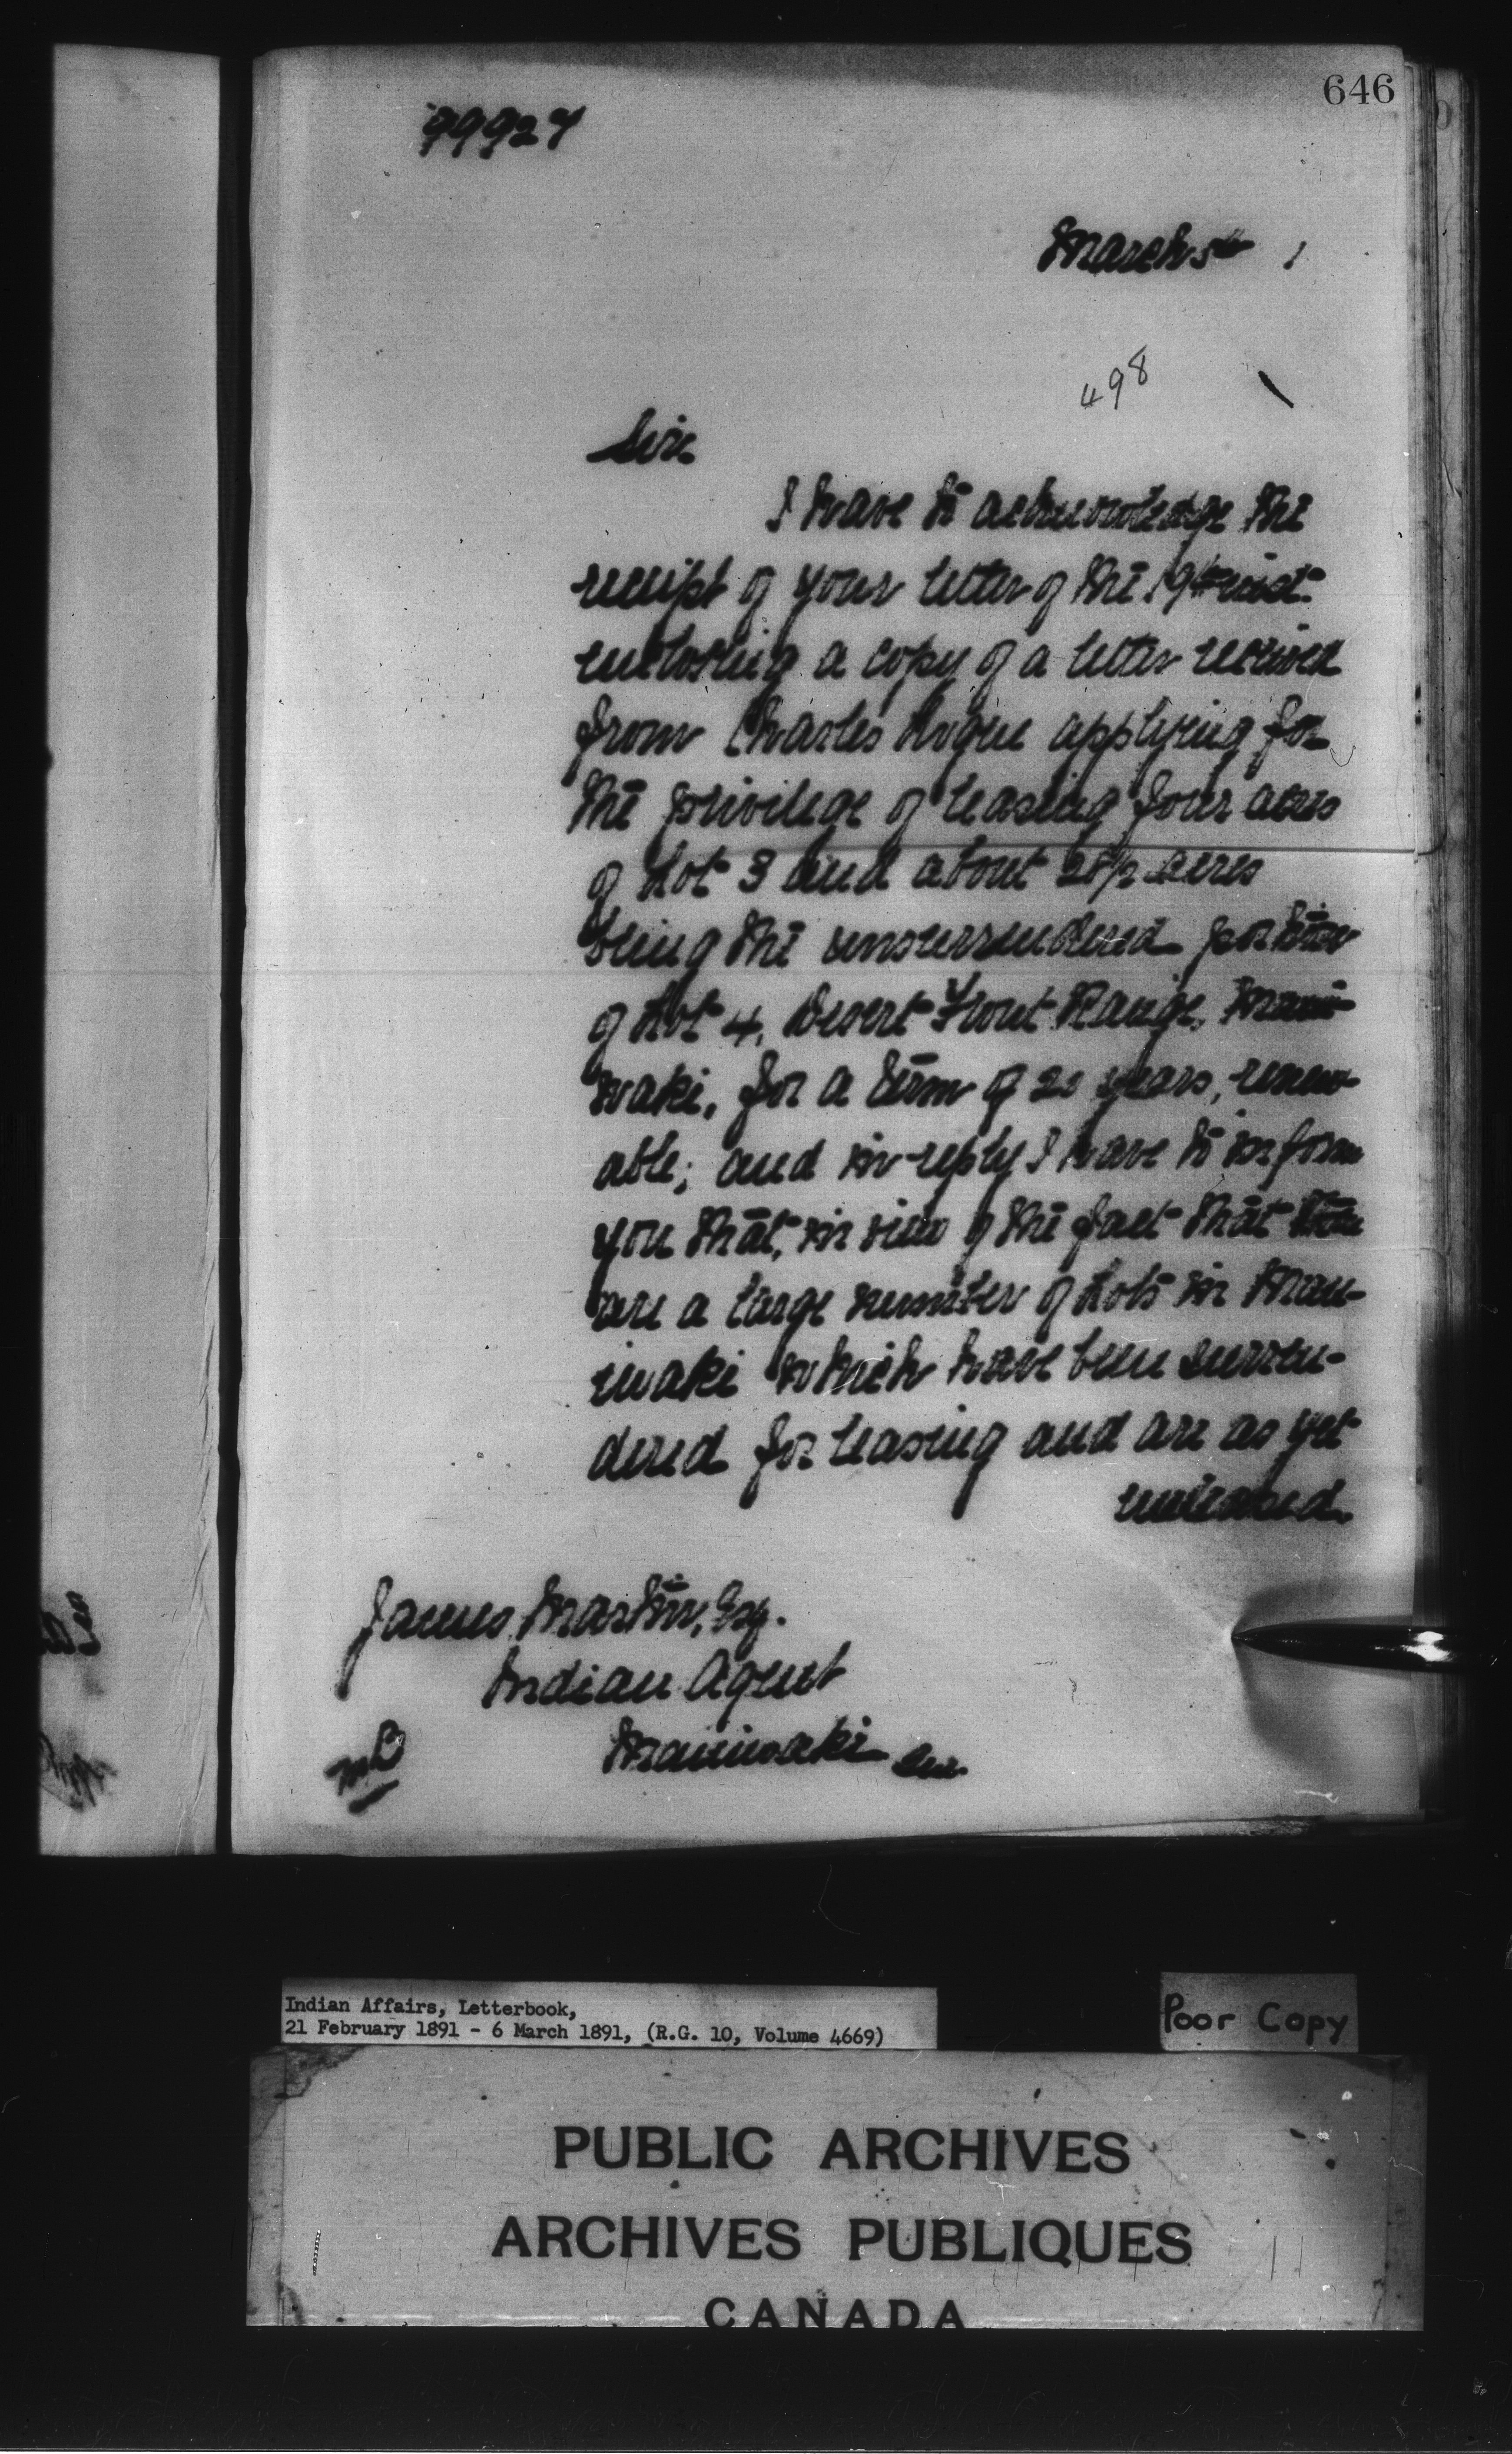 646
99927
March 5th 1
498
Sir
I have to acknowledge the
receipt of your letter of the 19th
enclosing a copy of a letter received
from Charles Logue applying for
the privilege of leasing four acres
of Lot 3 and about 28½ acres
being the unsurrendered portion
of Lot 4, Desert Front Range, Mani-
waki, for a term of 21 years, renew-
able; and in reply I have to inform
you that, in view of the fact that there
are a large number of Lots in Man-
iwaki which have been surren-
dered for leasing and are as yet
unleased.
James Martin, Esq.
Indian Agent
Maniwaki Que.
Indian Affairs, Letterbook,
21 February 1891 - 6 March 1891, (R.G. 10, Volume 4669)
Poor Copy
PUBLIC ARCHIVES
ARCHIVES PUBLIQUES
CANADA